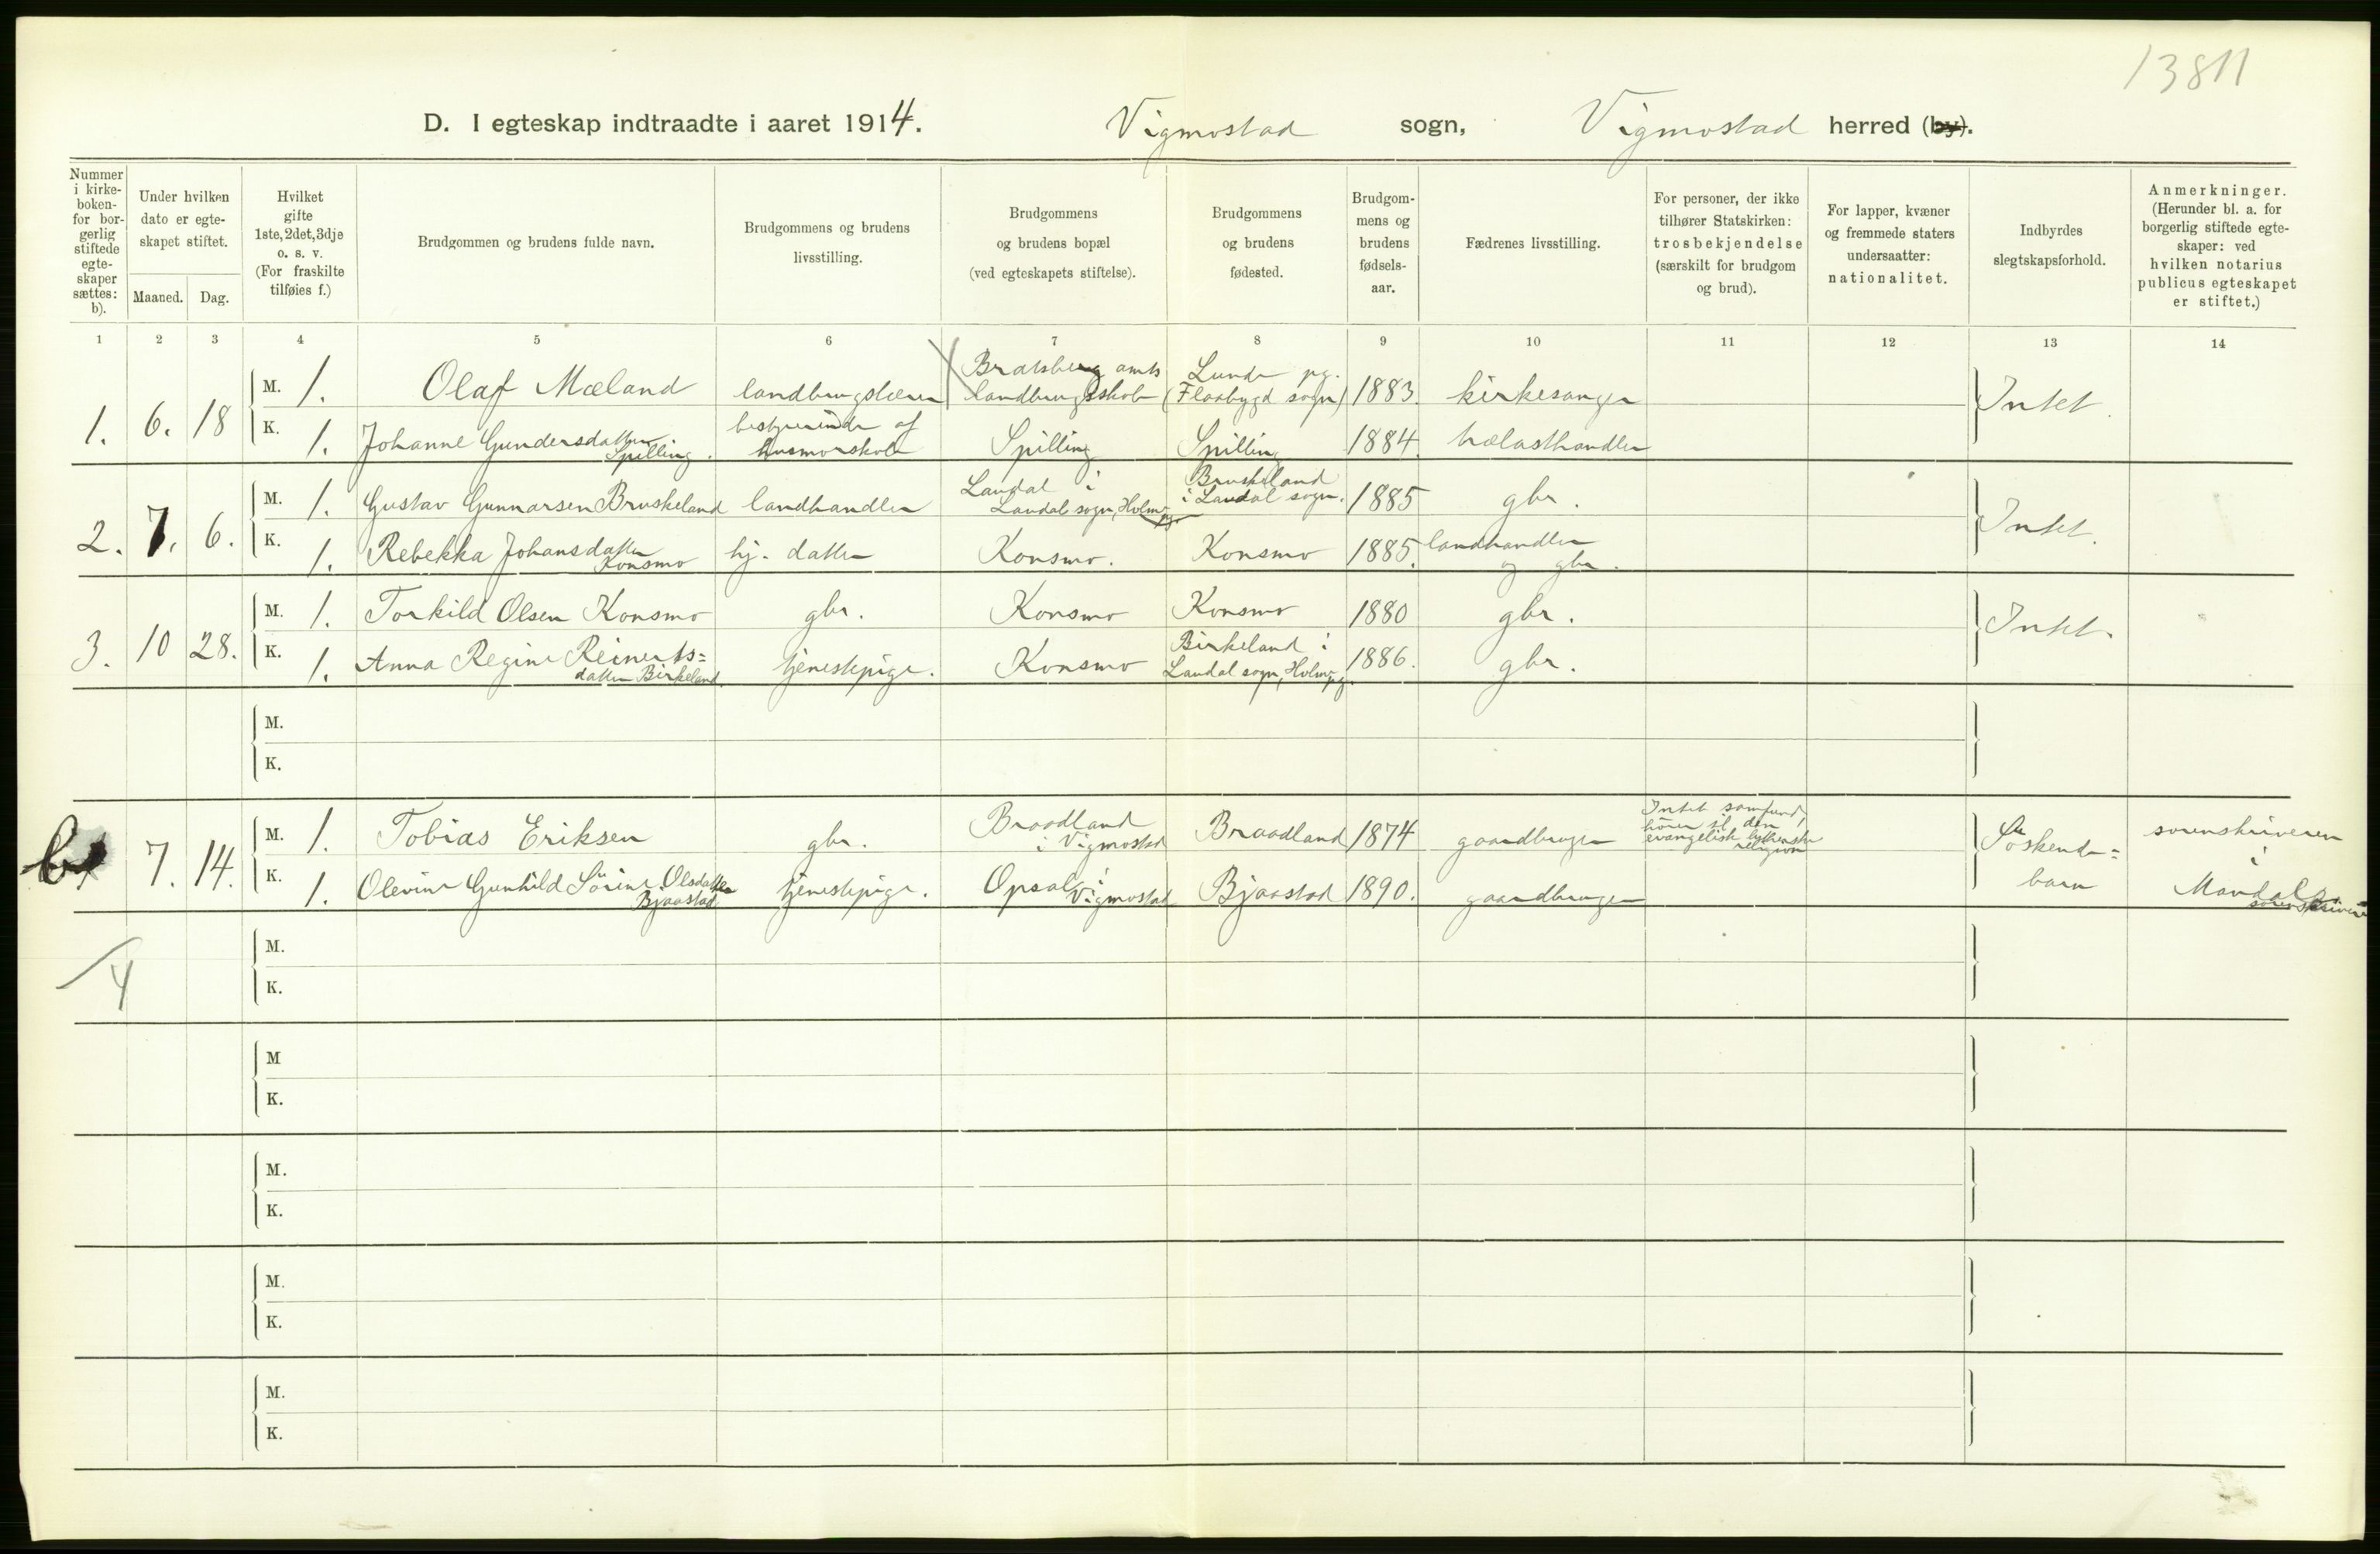 13811
D. I egteskap indtraadte i aaret 1914. Vigmostad sogn, Vigmostad herred (by).
Nummer i kirke-boken- for bor-gerlig stiftede egte-skaper sættes: b).
Under hvilken dato er egte-skapet stiftet.
Maaned. Dag.
Hvilket gifte 1ste, 2det, 3dje o. s. v. (For fraskilte tilføies f.)
Brudgommen og brudens fulde navn.
Brudgommens og brudens livsstilling.
Brudgommens og brudens bopæl (ved egteskapets stiftelse).
Brudgommens og brudens fødested.
Brudgom-mens og brudens fødsels-aar.
Fædrenes livsstilling.
For personer, der ikke tilhører Statskirken: trosbekjendelse (særskilt for brudgom og brud).
For lapper, kvæner og fremmede staters undersaatter: nationalitet.
Indbyrdes slegtskapsforhold.
Anmerkninger. (Herunder bl. a. for borgerlig stiftede egte-skaper: ved hvilken notarius publicus egteskapet er stiftet.)
1 2 3 4 5 6 7 8 9 10 11 12 13 14
1. 6. 18 M. 1. Olaf Mæland landbrugslærer Bratsberg amts landbrugsskole Lunde pg. (Flaabygd sogn) 1883. kirkesanger Intet.
K. 1. Johanne Gundersdatter Spilling. bestyrerinde af husmorskole Spilling Spilling 1884. trælasthandler
2. 7. 6. M. 1. Gustav Gunnarsen Bruskeland landhandler Laudal i Laudal sogn, Holme pg. Bruskeland i Laudal sogn. 1885 gbr. Intet.
K. 1. Rebekka Johansdatter Konsmo hj. datter Konsmo. Konsmo 1885. landhandler og gbr.
3. 10 28. M. 1. Torkild Olsen Konsmo gbr. Konsmo Konsmo 1880 gbr. Intet.
K. 1. Anna Regine Reinerts=datter Birkeland. tjenestepige. Konsmo Birkeland i Laudal sogn, Holme pg. 1886. gbr.
M.
K.
b1 7. 14. M. 1. Tobias Eriksen gbr. Braadland i Vigmostad Braadland 1874 gaardbruger Intet samfund, hører til den evangelisk lutherske religion Søskende=barn sorenskriveren i Mandals sorenskriveri
K. 1. Olevine Gunhild Sørine Olsdatter Bjaastad tjenestepige. Opsal i Vigmostad Bjaastad 1890. gaardbruger
4 M.
K.
M
K.
M.
K.
M.
K.
M.
K.